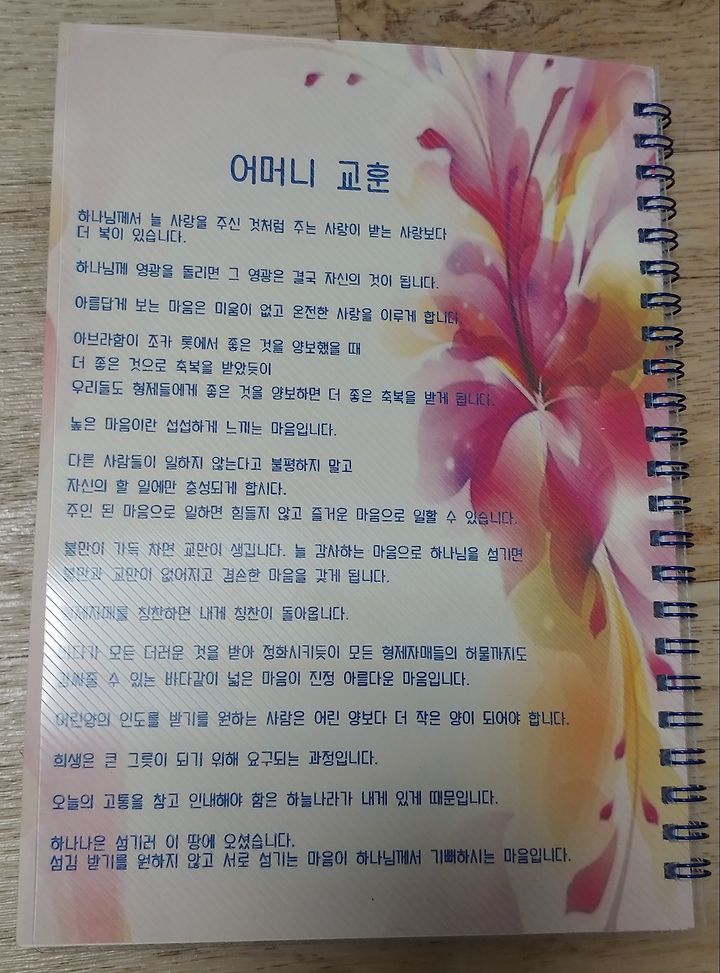 어머니 교훈
하나님께서 늘 사랑을 주신 것처럼 주는 사랑이 받는 사랑보다
더 복이 있습니다.
하나님께 영광을 돌리면 그 영광은 결국 자신의 것이 됩니다.
아름답게 보는 마음은 미움이 없고 온전한 사랑을 이루게 합니다.
아브라함이 조카 롯에서 좋은 것을 양보했을 때
더 좋은 것으로 축복을 받았듯이
우리들도 형제들에게 좋은 것을 양보하면 더 좋은 축복을 받게 됩니다.
높은 마음이란 섭섭하게 느끼는 마음입니다.
다른 사람들이 일하지 않는다고 불평하지 말고
자신의 할 일에만 충성되게 합시다.
주인 된 마음으로 일하면 힘들지 않고 즐거운 마음으로 일할 수 있습니다.
불만이 가득 차면 교만이 생깁니다. 늘 감사하는 마음으로 하나님을 섬기면
불만과 교만이 없어지고 겸손한 마음을 갖게 됩니다.
형제자매를 칭찬하면 내게 칭찬이 돌아옵니다.
바다가 모든 더러운 것을 받아 정화시키듯이 모든 형제자매들의 허물까지도
감싸줄 수 있는 바다같이 넓은 마음이 진정 아름다운 마음입니다.
어린양의 인도를 받기를 원하는 사람은 어린 양보다 더 작은 양이 되어야 합니다.
희생은 큰 그릇이 되기 위해 요구되는 과정입니다.
오늘의 고통을 참고 인내해야 함은 하늘나라가 내게 있게 때문입니다.
하나나은 섬기러 이 땅에 오셨습니다.
섬김 받기를 원하지 않고 서로 섬기는 마음이 하나님께서 기뻐하시는 마음입니다.